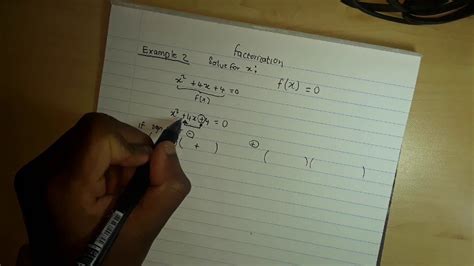 factorisation
Example 2 Solve for x;
x² + 4x + 4 = 0 f(x) = 0
f(x)
x² + 4x + 4 = 0
if
⊖ ⊕
( + ) ( ) ( )